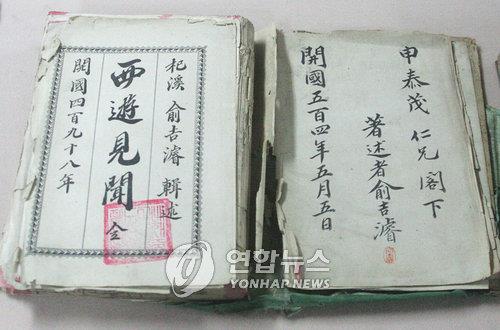 杞溪 俞吉濬 輯述
西遊見聞 全
開國四百九十八年
申泰茂 仁兄 閣下
著述者俞吉濬
開國五百四年五月五日
연합뉴스
YONHAP NEWS